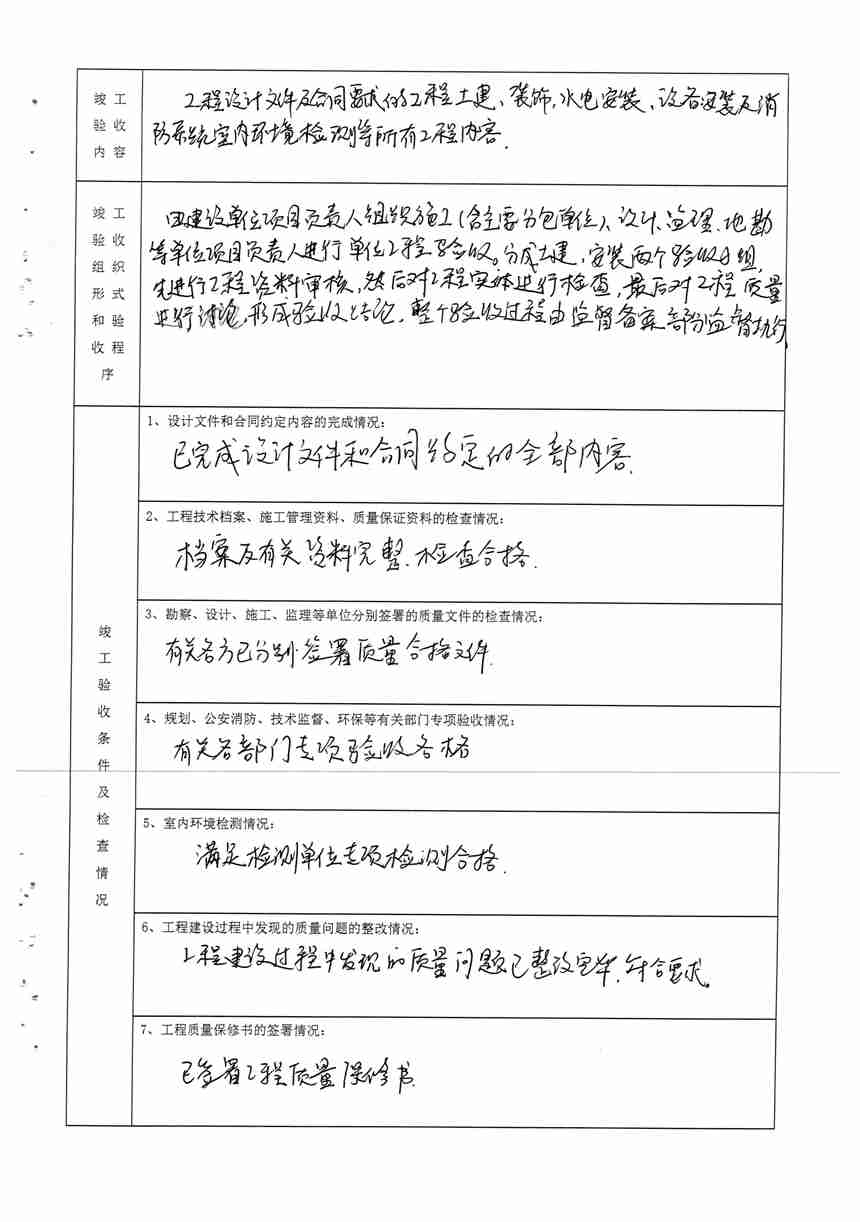 竣 工
验 收
内 容
工程设计文件及合同要求的工程土建、装饰,水电安装、设备安装及消
防系统室内环境检测等所有工程内容.
竣 工
验 收
组 织
形 式
和 验
收 程
序
由建设单位项目负责人组织施工(含主要分包单位)、设计、监理、地勘
等单位项目负责人进行单位工程验收。分成土建,安装两个验收小组,
先进行工程资料审核,然后对工程实体进行检查,最后对工程质量
进行讨论,形成验收结论.整个验收过程由监督备案部份监督执行
竣
工
验
收
条
件
及
检
查
情
况
1、设计文件和合同约定内容的完成情况:
已完成设计文件和合同约定的全部内容.
2、工程技术档案、施工管理资料、质量保证资料的检查情况:
档案及有关资料完整.检查合格.
3、勘察、设计、施工、监理等单位分别签署的质量文件的检查情况:
有关各方已分别签署质量合格文件.
4、规划、公安消防、技术监督、环保等有关部门专项验收情况:
有关各部门专项验收合格
5、室内环境检测情况:
满足检测单位专项检测合格.
6、工程建设过程中发现的质量问题的整改情况:
工程建设过程中发现的质量问题已整改完毕.符合要求。
7、工程质量保修书的签署情况:
已签署工程质量保修书.